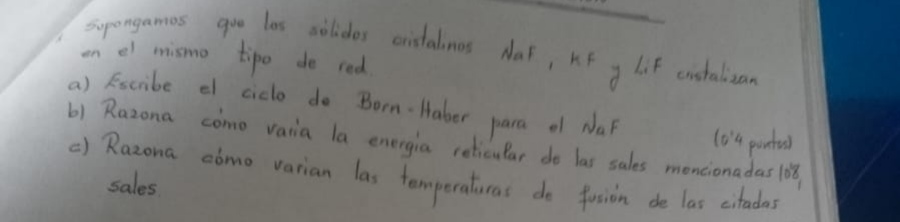 Supongamos que los sólidos cristalinos NaF, KF y LiF cristalizan
en el mismo tipo de red.
a) Escribe el ciclo de Born-Haber para el NaF (0'4 puntos)
b) Razona cómo varia la energía reticular de las sales mencionadas (0'8,
c) Razona cómo varian las temperaturas de fusión de las citadas
sales.